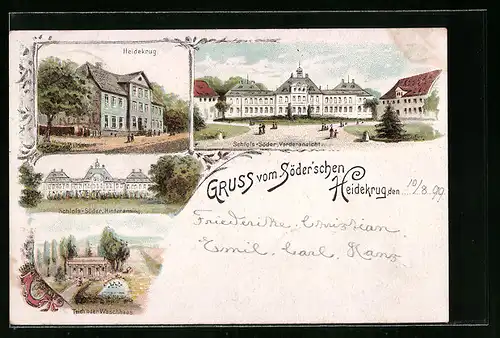 Heidekrug.
Schloss-Söder, Vorderansicht.
Schloss-Söder, Hinteransicht.
GRUSS vom Söder'schen
Heidekrug, den 10/8.99
Friederike Christian
Emil, Carl, Hans
Waschhaus.